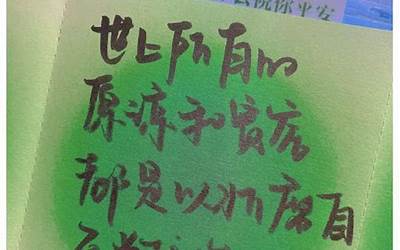 你平安
世上所有的
原谅和宽容
都是以折磨自